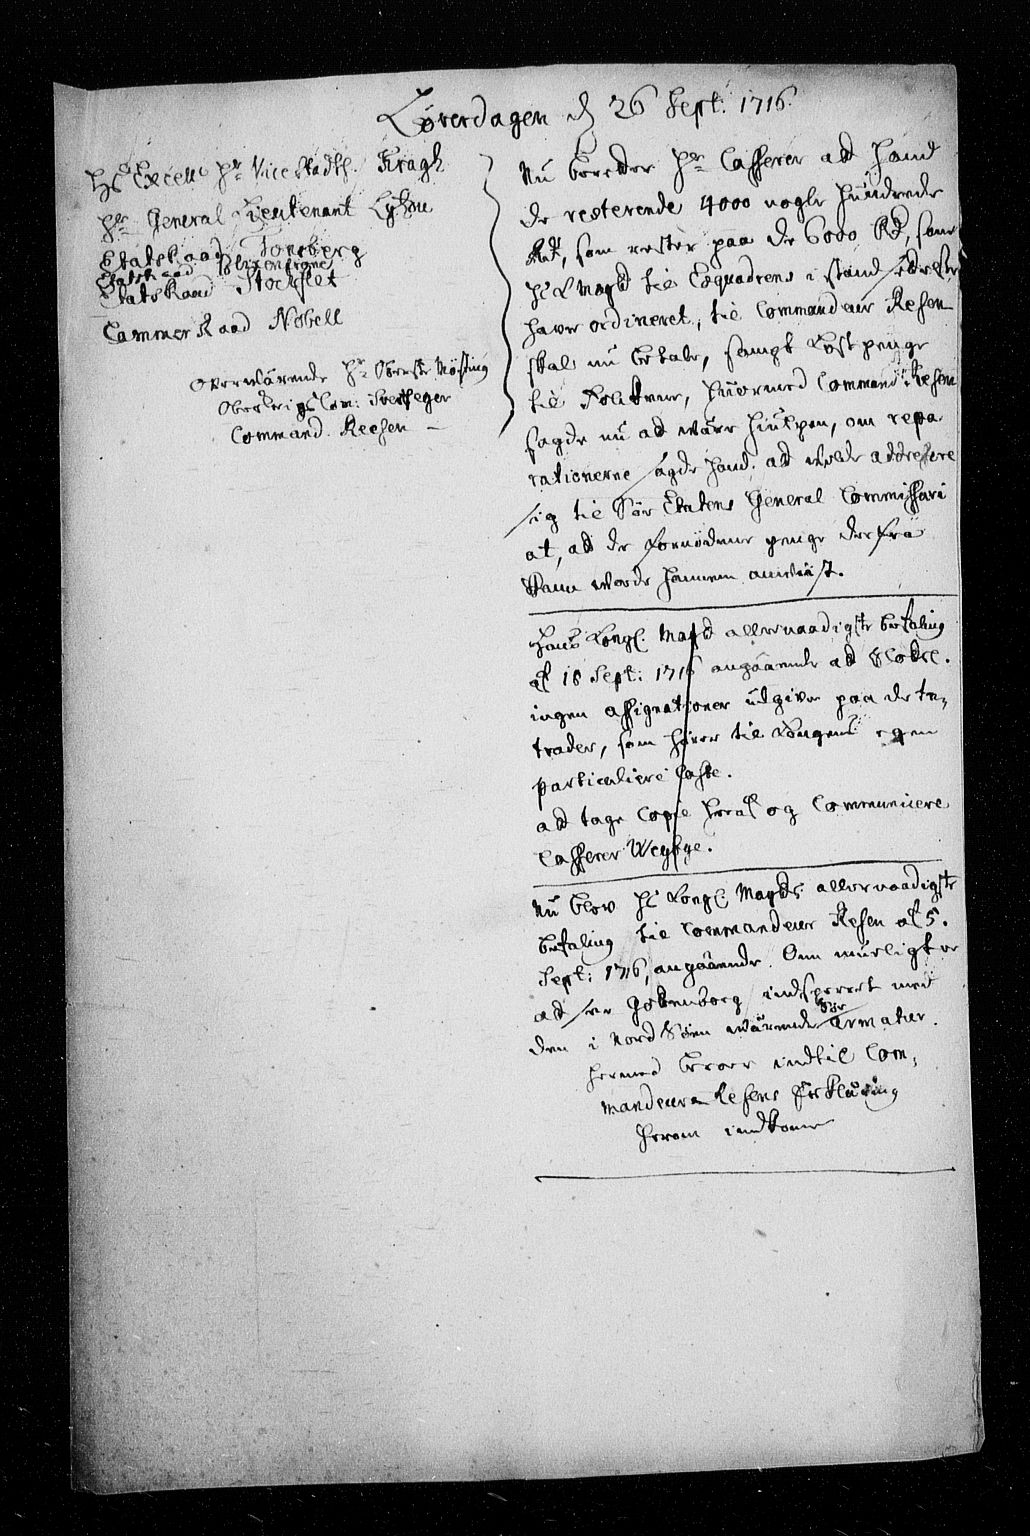 Løverdagen d 26 Sept: 1716.
Hs Excell: Hr Vice Stadth. Kragh
Hr General Lieutenant Lytzou
Etats Raad Tonsberg
Etats Raad
Etats Raad Stockflet
Cammer Raad Nobell
Overwärende Hr Oberste Nøsting
Ober Krigs Com:
Command. Reesen
Nu beretter Hr Casserer ad hand
de resterende 4000 nogle hundrede
Rdr, som rester paa de 6000 Rd, som
Hs K Mayst til Esquadrens i stand sættelse
haver ordineret, til Commandeur Resen
skal nu betale, sampt Kostpenge
til Folckene, huormed Command: Resen
sagde nu ad være hiulpen, om repa
rationerne sagde hand, ad wilde addressere
sig til Søe Etatens General Commissari
at, ad de fornødene penge derfra
kunne worde hannem anwiist.
Hans Kongl: Mayst allernaadigste befaling
af 18 Sept: 1716 angaaende ad
ingen assignationer udgives paa de in-
trader, som hører til Kongens egen
particuliere Casse.
ad tage Copie heraf og Communicere
Casserer Weybye.
Nu blev Hs Kongl: Mayts: allernaadigste
befaling til Commandeur Resen af 5.
Sept: 1716, angaaende Om mueligt er
ad see Gottenborg indsperret med
den i Nord Søen wærende Søe Armatur.
hermed beroer indtil Com-
mandeur Resens Erklæring
herom indkommer